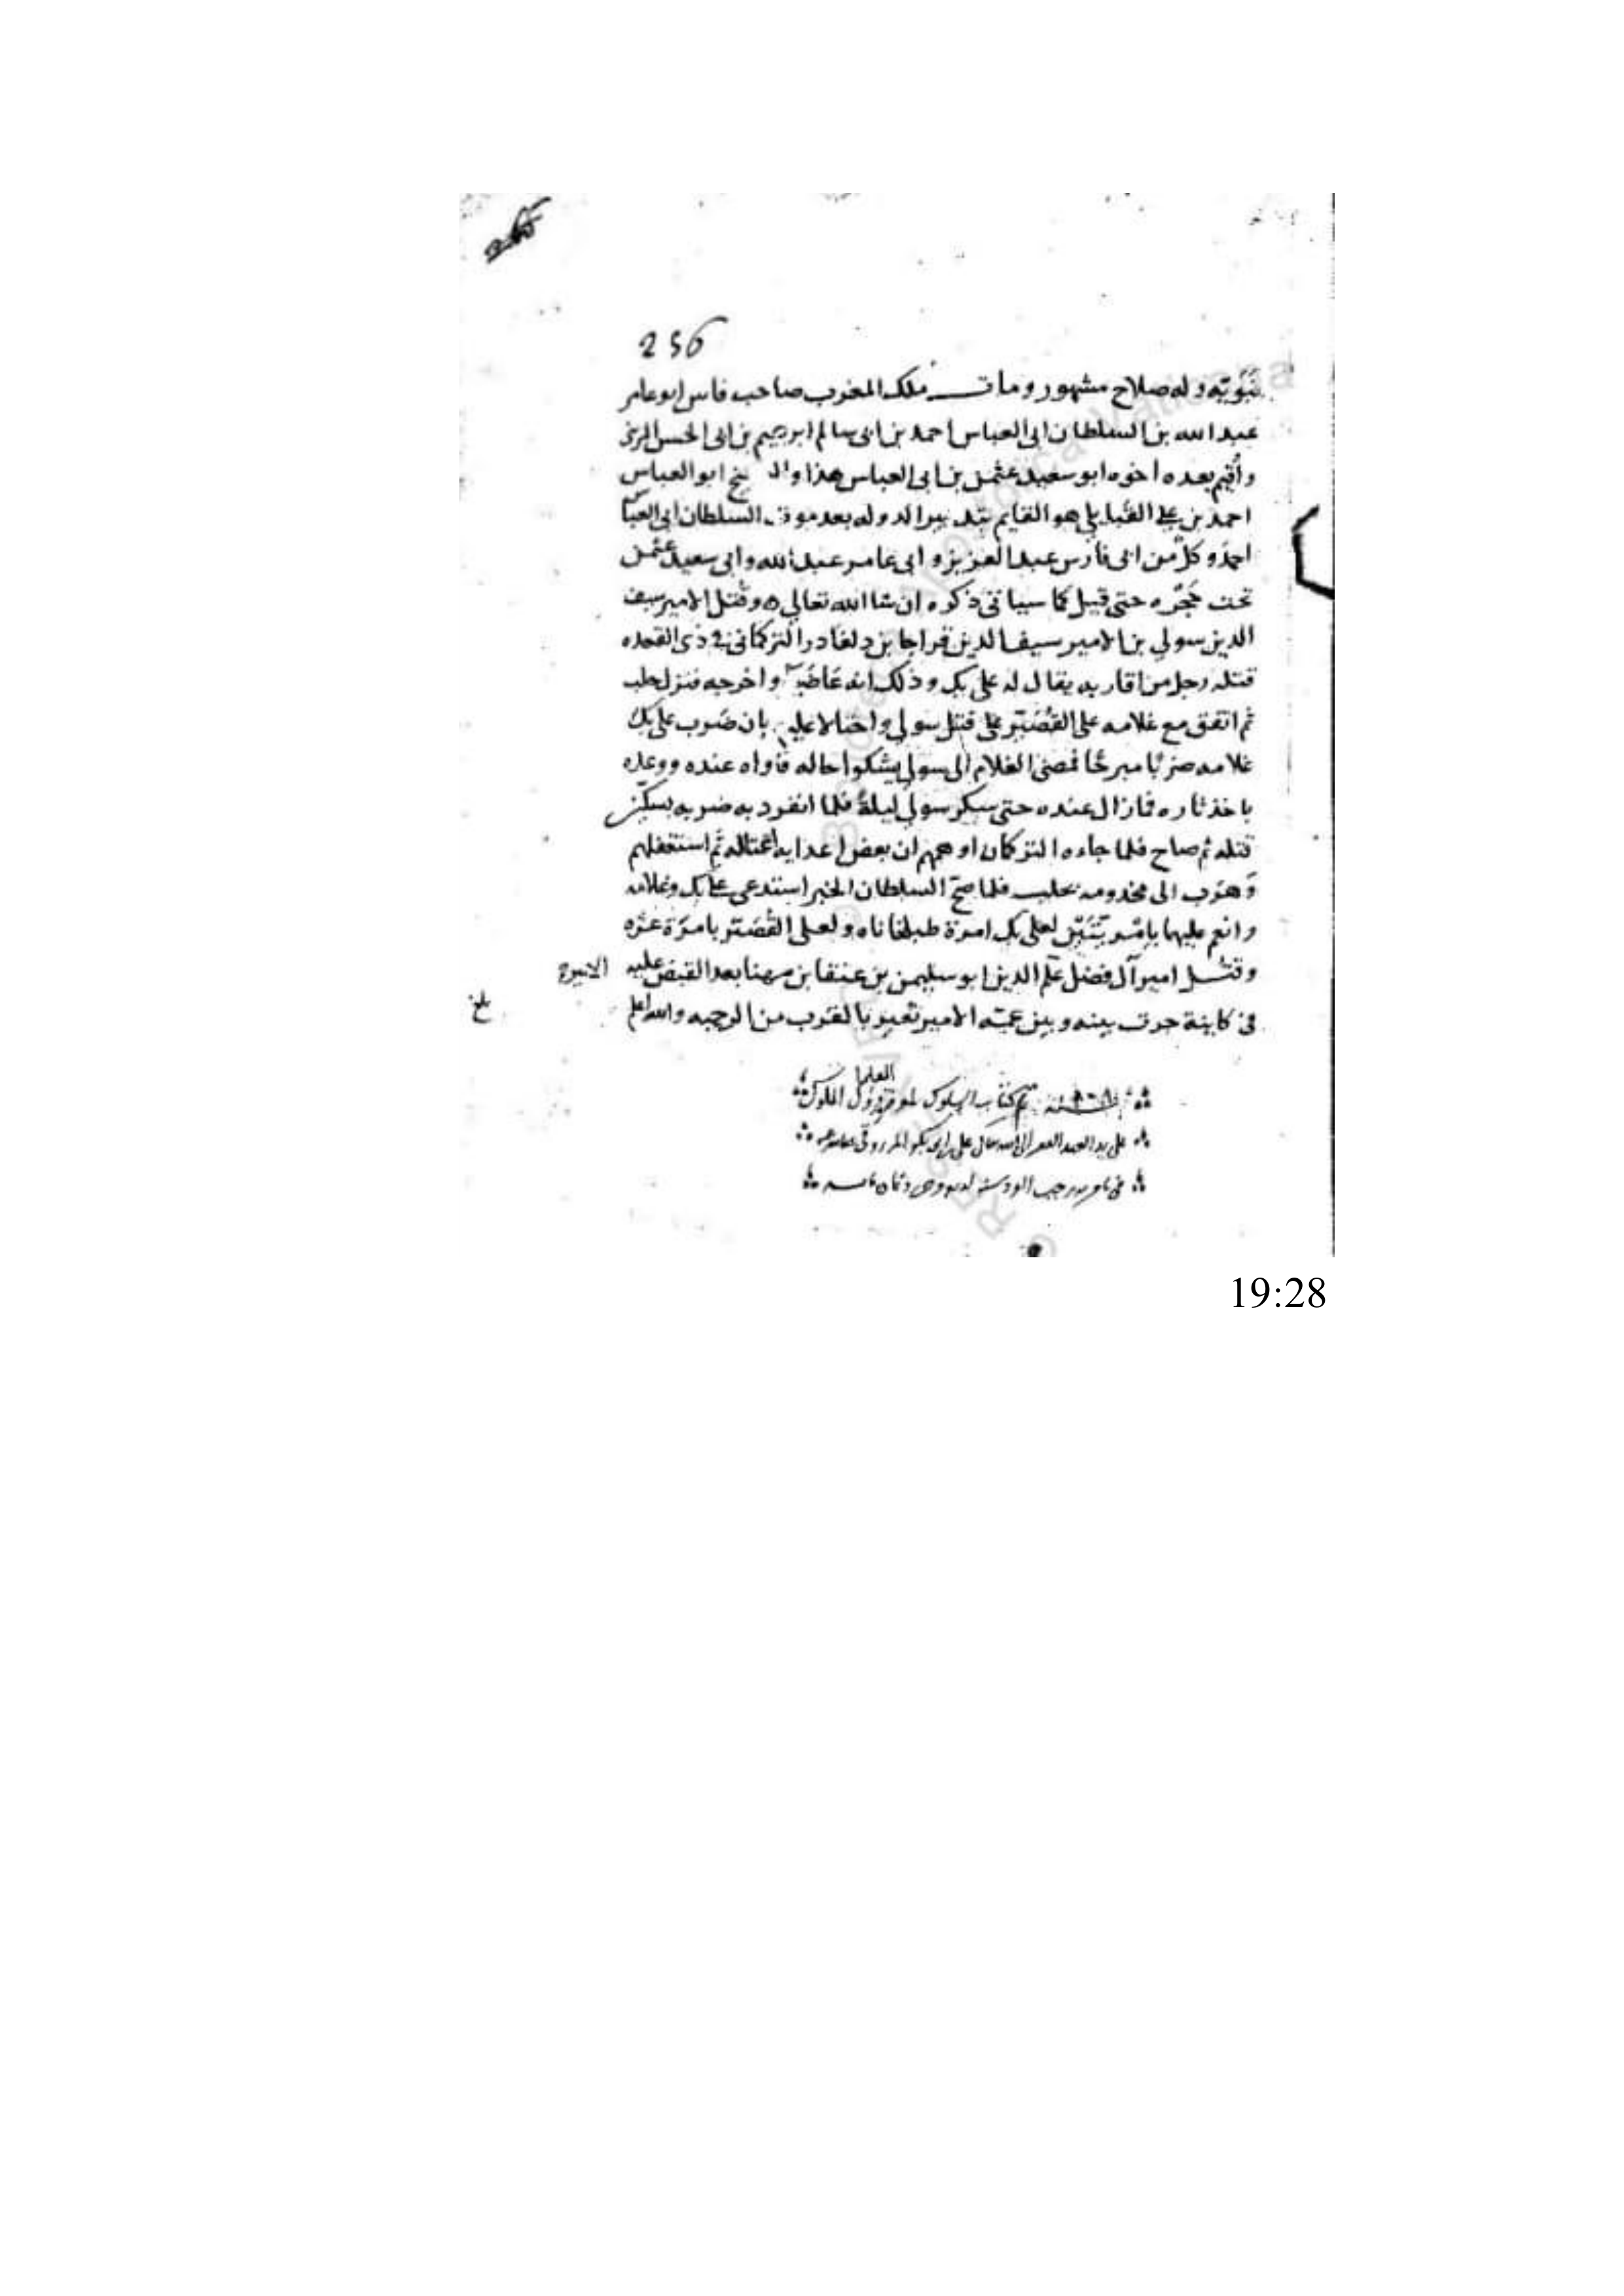 256
نبَويّه وله صلاح مشهور ومات ملك المغرب صاحب فاس ابو عامر
عبد الله بن السلطان ابى العباس احمد بن ابى سالم ابرهيم بن ابى الحسن المرينى
وأقيم بعده اخوه ابو سعيد عثمن بن ابى العباس هذا وال ابو العباس
احمد بن على القبايلى هو القايم بتدبير الدوله بعد موت السلطان ابى العباس
احمد وكل من ابى فارس عبد العزيز و ابى عامر عبد الله وابى سعيد عثمن
تحت حَجْره حتى قتل كما سياتى ذكره ان شا الله تعالى ه وقُتل الامير سيف
الدين سولي بن الامير سيف الدين قراجا بن دلغادر التركمانى فى ذى القعده
قتله رجل من اقاربه يقال له على بك وذلك انه غاضَبه واخرجه فنزل حلب
ثم اتفق مع غلامه على القُصَيّر على قتل سولي واحتالا عليه بان ضَرب على بك
غلامه ضربًا مبرحًا فمضى الغلام الى سولي يشكوا حاله فأواه عنده ووعده
باخذ ثاره فما زال عنده حتى سكر سولي ليلةً فلما انفرد به ضربه بسكّين
قتله ثم صاح فلما جاءه التركمان اوهمهم ان بعض اعدايه اغتاله ثم استغفلهم
وَهَرَب الى مخدومه بحلب فلما صَحّ السلطان الخبر استدعى على بك وغلامه
وانعم عليهما بإمْرتَيْن لعلى بك امرة طبلخاناه ولعلى القُصَيّر بامرَة عشره
وقتل امير آل فضل علَم الدين ابو سليمن بن عنقا بن مهنا بعد القبض عليه
الامير
فى كاينة جرت بينه وبين عمّه الامير نُعير بالقرب من الرحبه والله اعلم
بلغ
العلما
تم كتاب السلوك لمعرفة دول الملوك
على يد العبد الفقير الى الله تعالى على بن ابى بكر
فى رجب الفرد سنه وثمان مايه
19:28